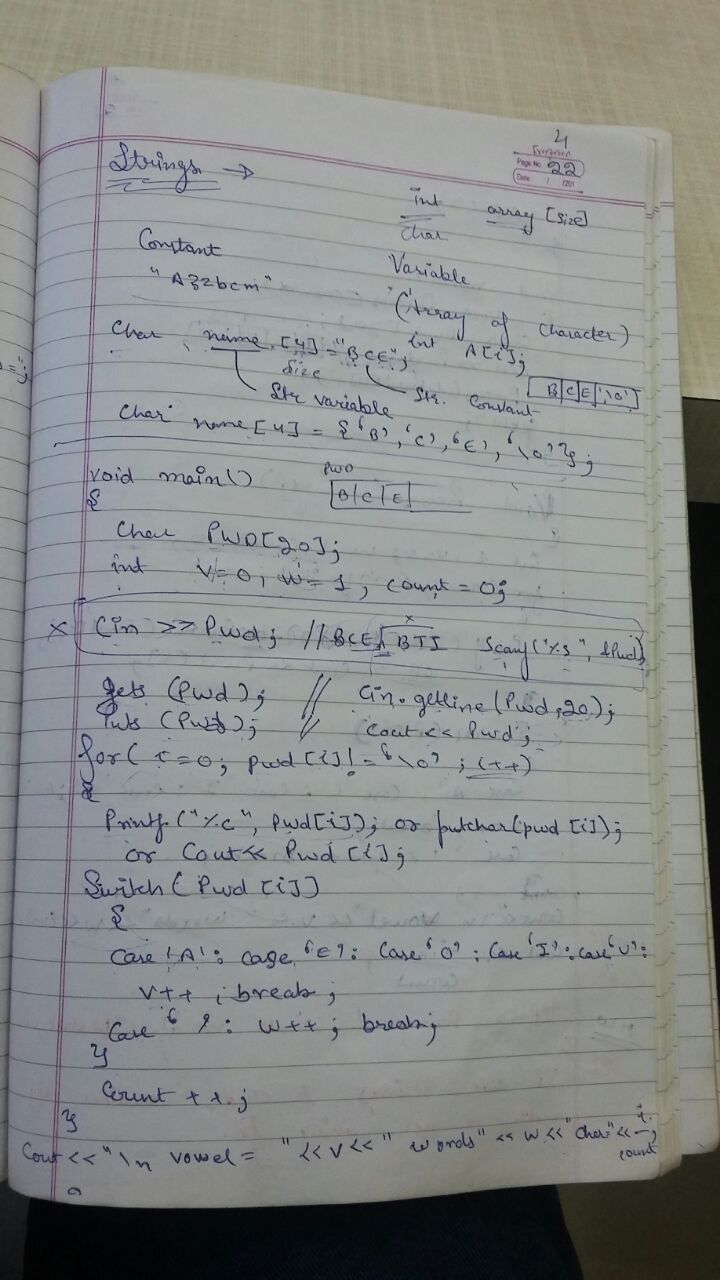 4
Evergreen
Page No. 22
Date / /201
Strings →
int array [size]
char
Constant Variable
"A32bcm" (Array of character)
int A[i];
Char name [4] = "BCE";
Size
Str variable Str. Constant
B|C|E|'\0'
Char name [4] = {'B', 'C', 'E', '\0'};
void main()
{
PWD
B|C|E|
Char PWD[20];
int V=0, W=1, count=0;
x Cin >> Pwd; // BCE BTI Scanf("%s", &Pwd);
x
gets (Pwd); // Cin.getline(Pwd,20);
Puts (Pwd); // Cout << Pwd;
for( i=0; pwd[i]!='\0'; i++)
{
Printf("%c", Pwd[i]); or putchar(pwd[i]);
or Cout<< Pwd[i];
Switch(Pwd[i])
{
Case 'A': case 'E': Case 'O': Case 'I': case 'U':
V++; break;
Case ' ': W++; break;
}
Count ++;
}
Cout <<"\n vowel= "<<V<<" words"<< W<<"Char"<< i;
count